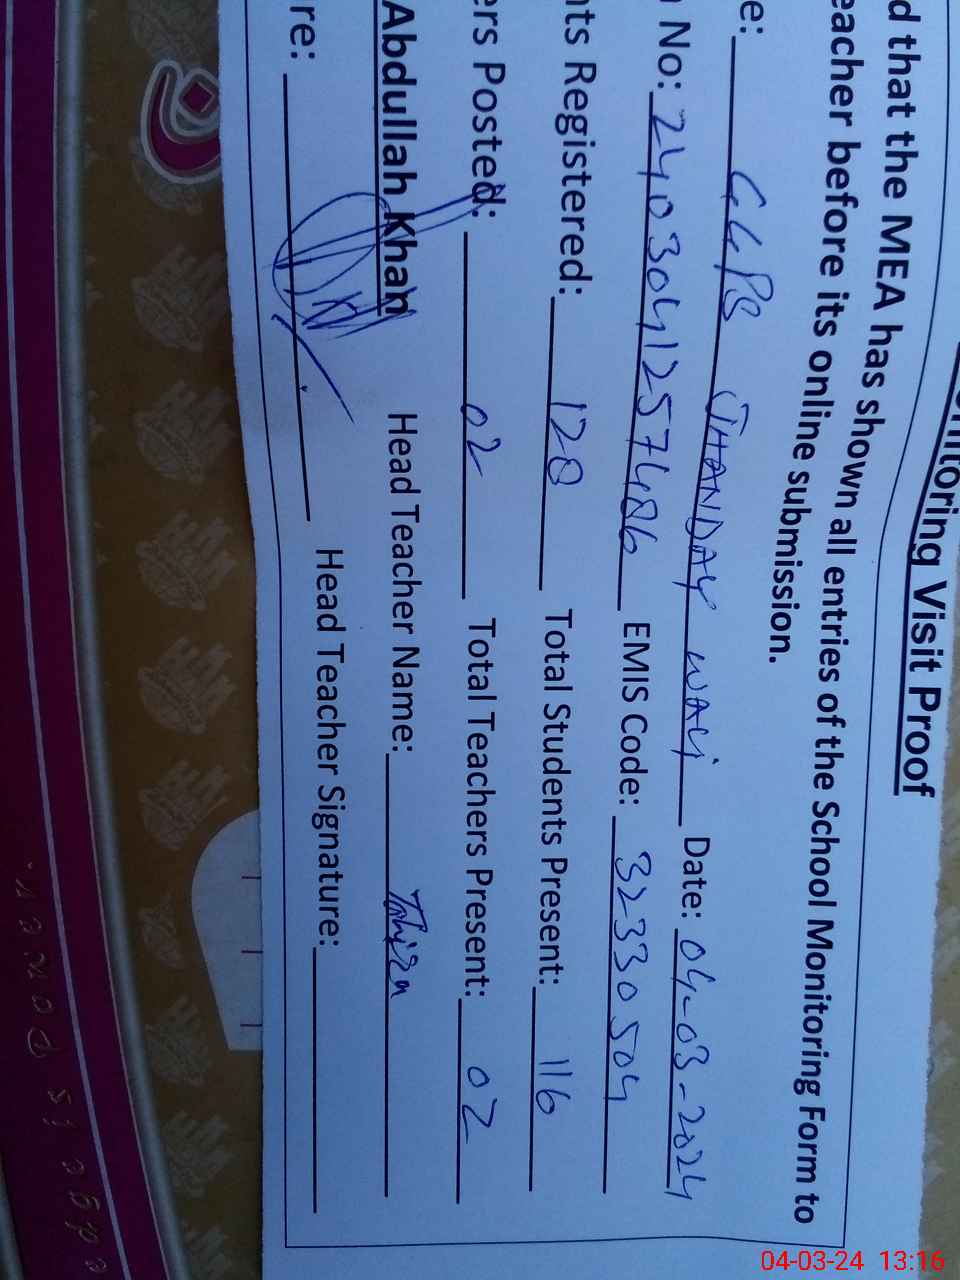 onitoring Visit Proof
d that the MEA has shown all entries of the School Monitoring Form to
eacher before its online submission.
e: GGPS JHANDAY WALI Date: 04-03-2024
No: 240304125748б EMIS Code: 32330504
nts Registered: 128 Total Students Present: 116
ers Posted: 02 Total Teachers Present: 02
Abdullah Khan Head Teacher Name: Tahira
re: Head Teacher Signature:
04-03-24 13:16